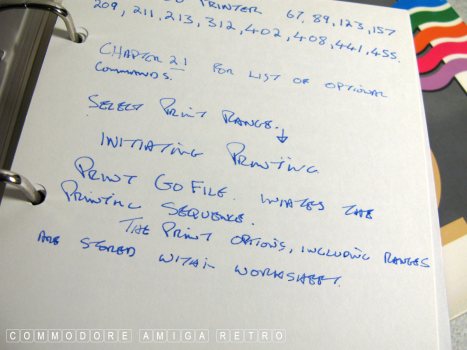 PRINTER 67, 89, 123, 157
209, 211, 213, 312, 402, 408, 441, 455.
CHAPTER 21 FOR LIST OF OPTIONAL
COMMANDS.
SELECT PRINT RANGE.
INITIATING PRINTING
PRINT GO FILE. INIATES THE
PRINTING SEQUENCE.
THE PRINT OPTIONS, INCLUDING RANGES
ARE STORED WITHIN WORKSHEET.
COMMODORE AMIGA RETRO